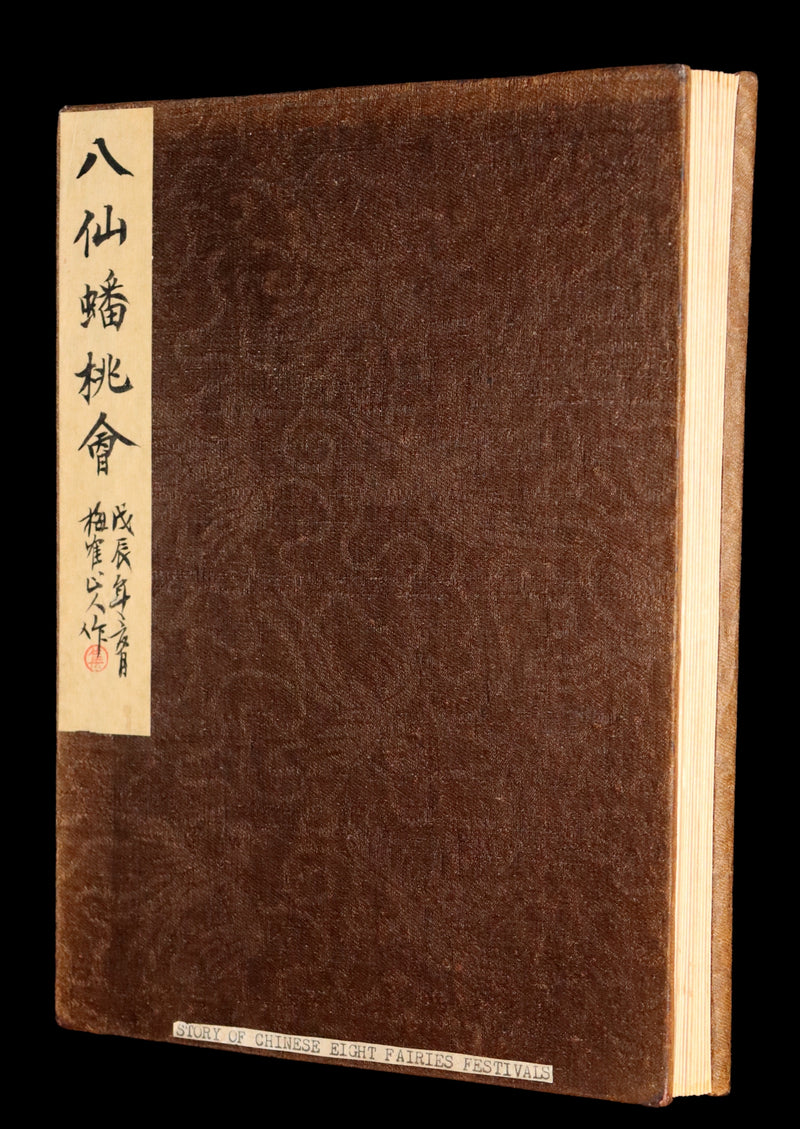 八仙蟠桃會
戊辰年
梅 山人作
STORY OF CHINESE EIGHT FAIRIES FESTIVALS